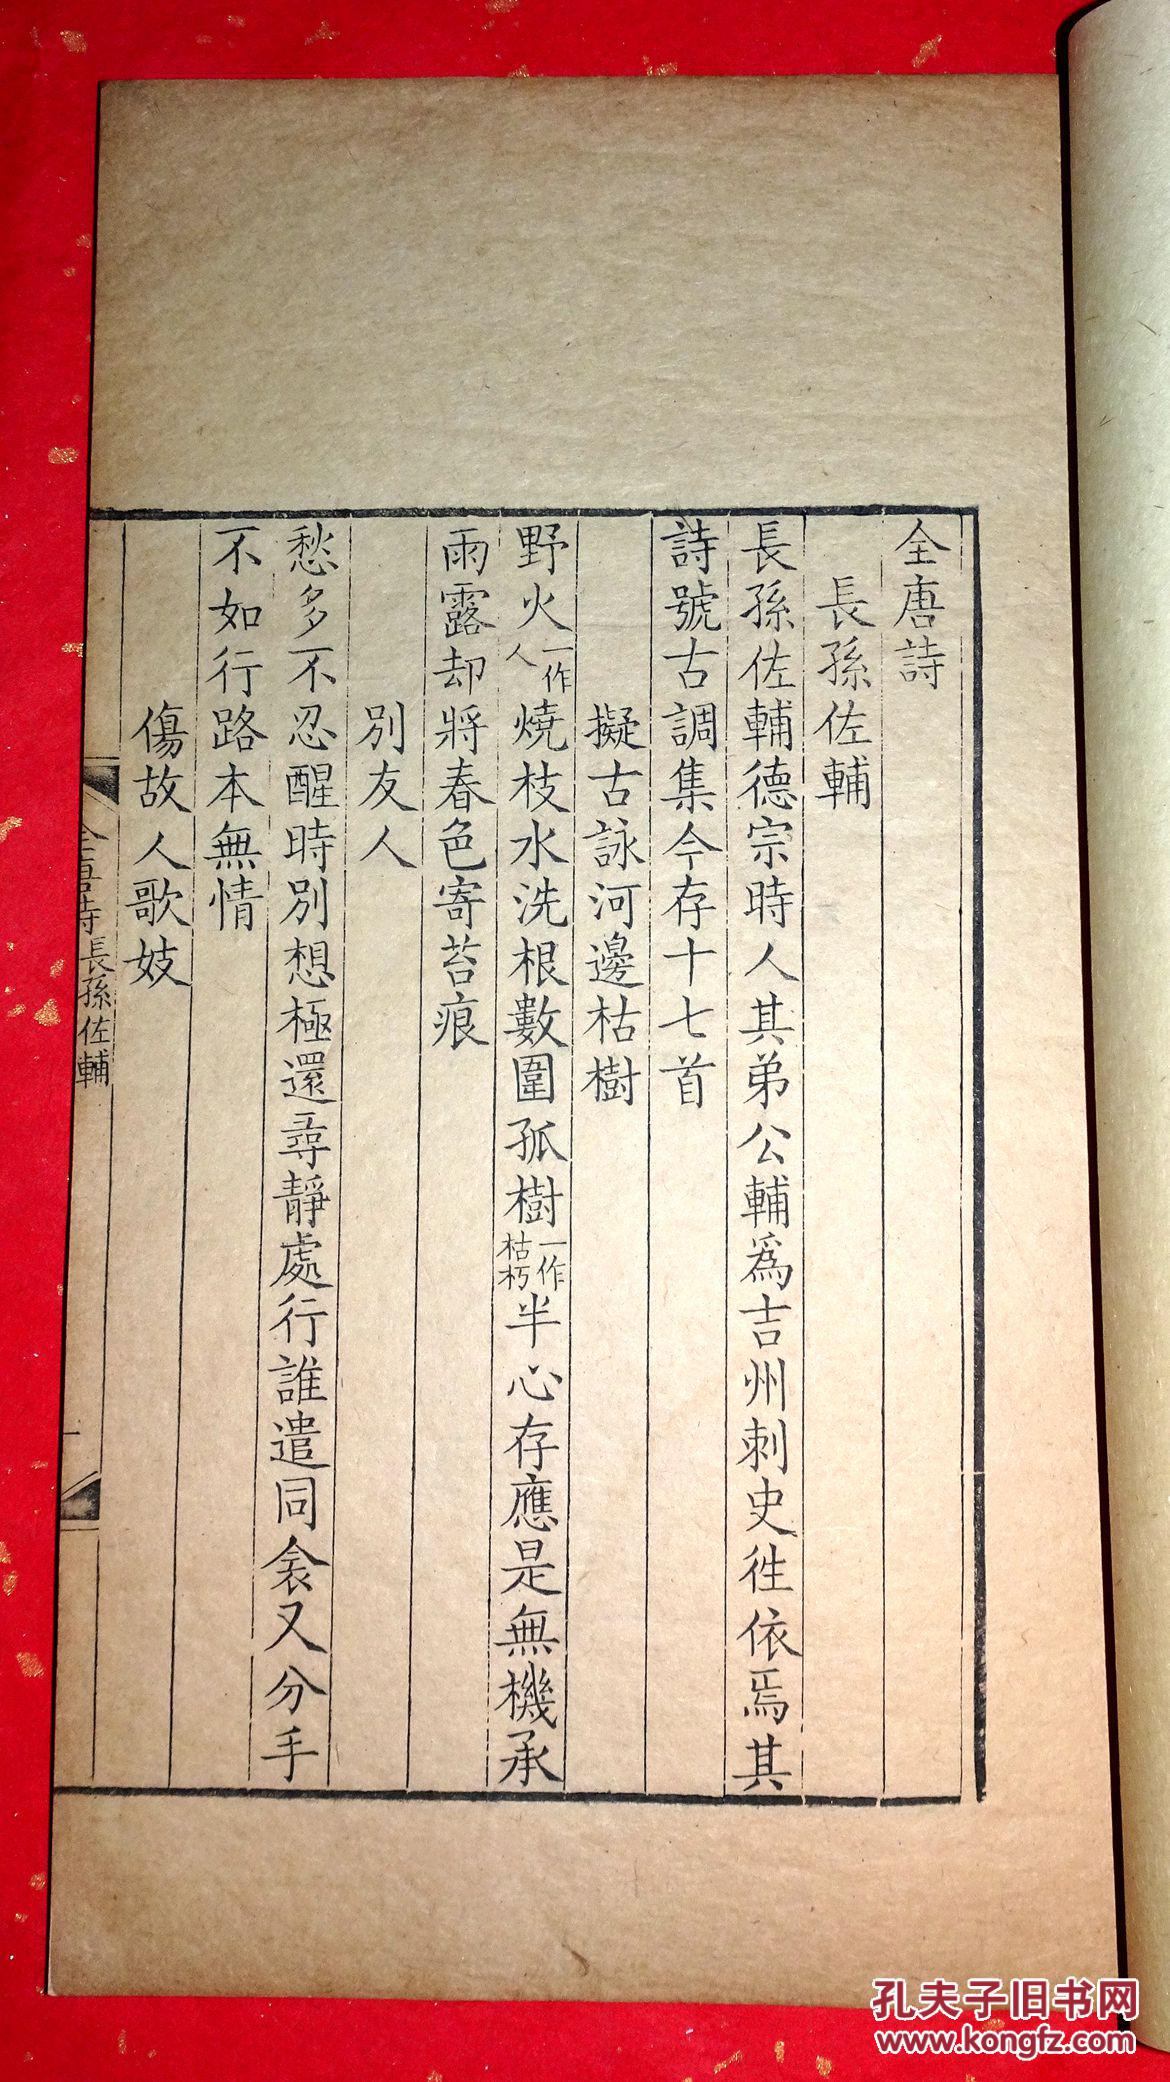 全唐詩
長孫佐輔
長孫佐輔德宗時人其弟公輔爲吉州刺史徃依焉其
詩號古調集今存十七首
擬古詠河邊枯樹
野火一作人燒枝水洗根數圍孤樹一作枯朽半心存應是無機承
雨露却將春色寄苔痕
別友人
愁多不忍醒時別想極還尋靜處行誰遣同衾又分手
不如行路本無情
傷故人歌妓
全唐詩 長孫佐輔
一
孔夫子旧书网
www.kongfz.com